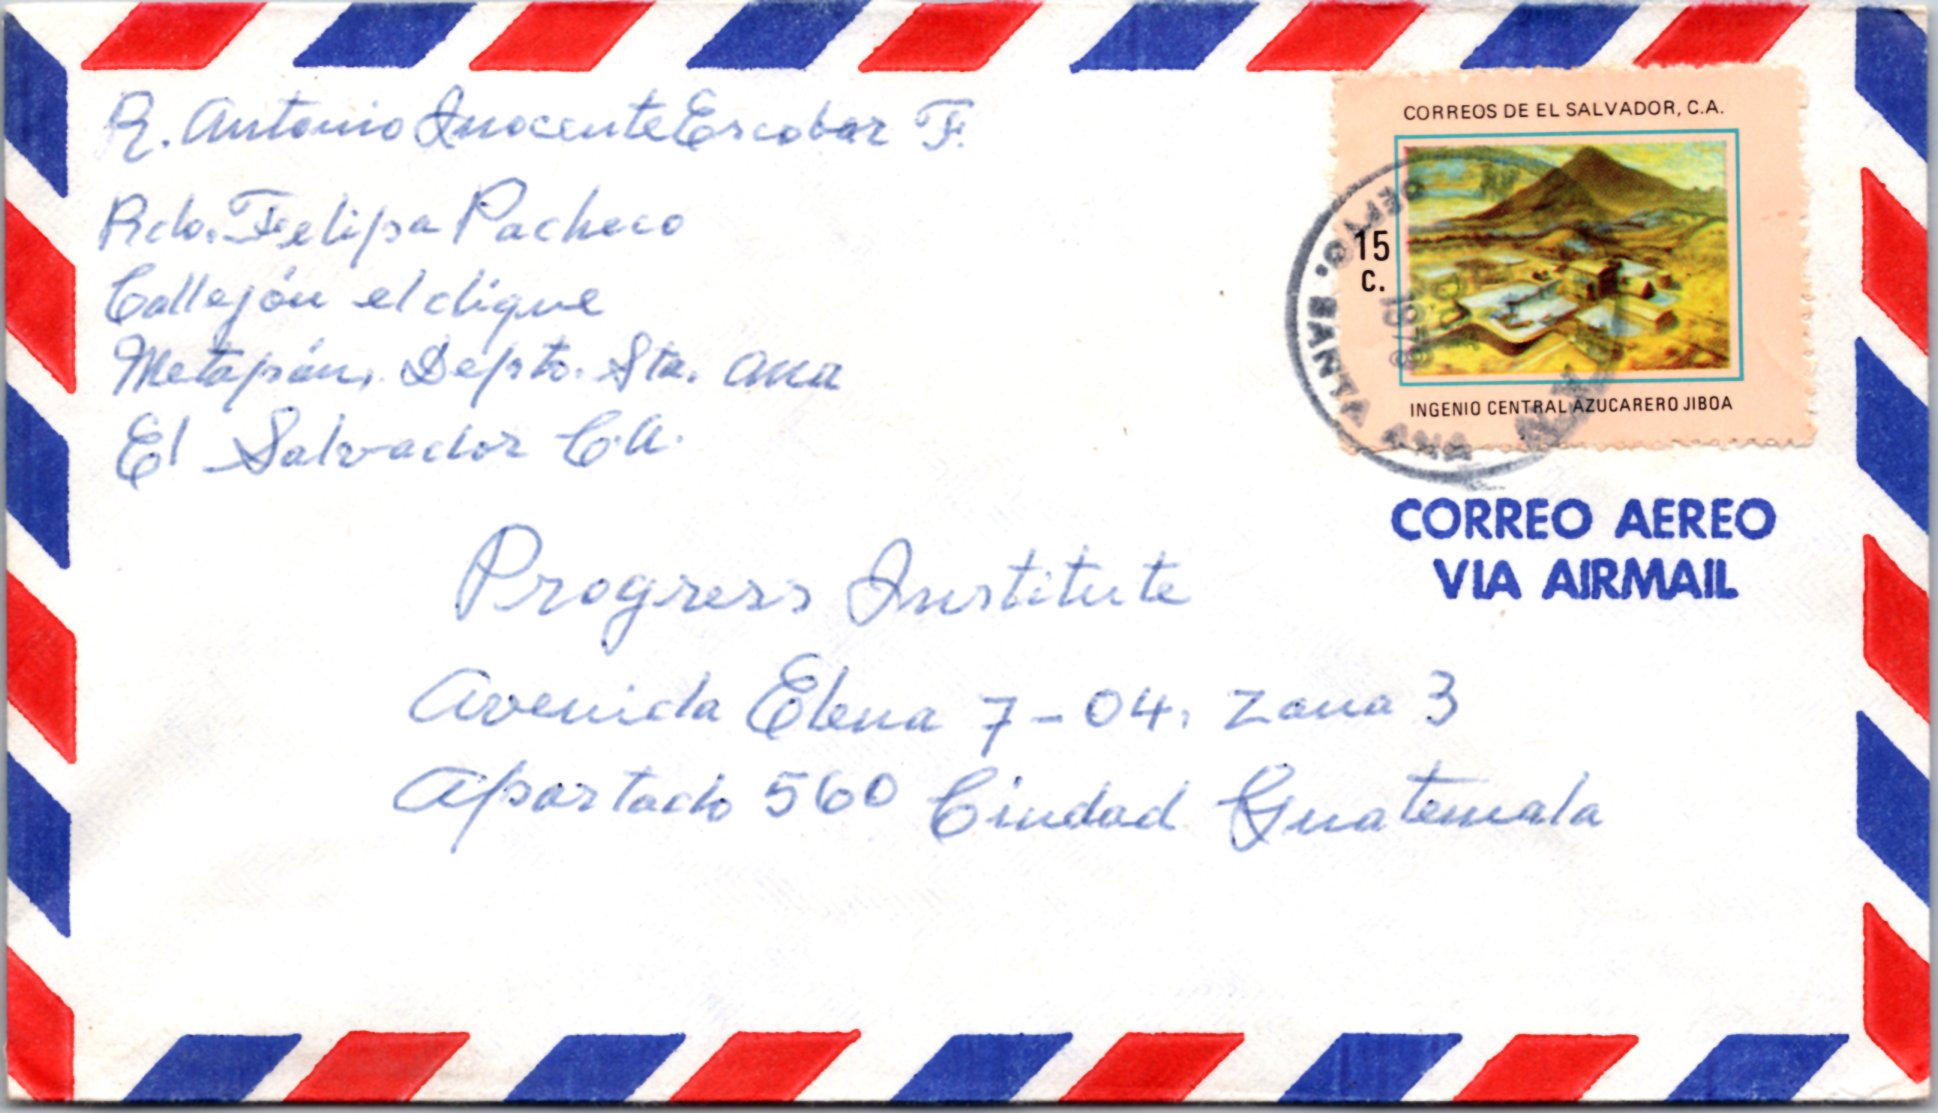 R. Antonio Inocente Escobar F.
Rdo. Felipa Pacheco
Callejón el dique
Metapán, Depto. Sta. Ana
El Salvador C.A.
CORREOS DE EL SALVADOR, C.A.
15
C.
INGENIO CENTRAL AZUCARERO JIBOA
DEPTO. SANTA ANA
CORREO AEREO
VIA AIRMAIL
Progress Institute
Avenida Elena 7-04, Zona 3
Apartado 560 Ciudad Guatemala